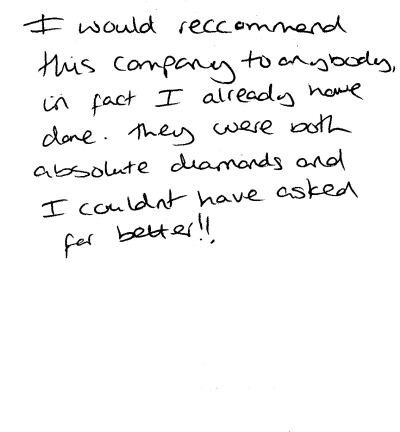 I would reccommend
this company to anybody,
in fact I already have
done. They were both
absolute diamonds and
I couldnt have asked
for better!!